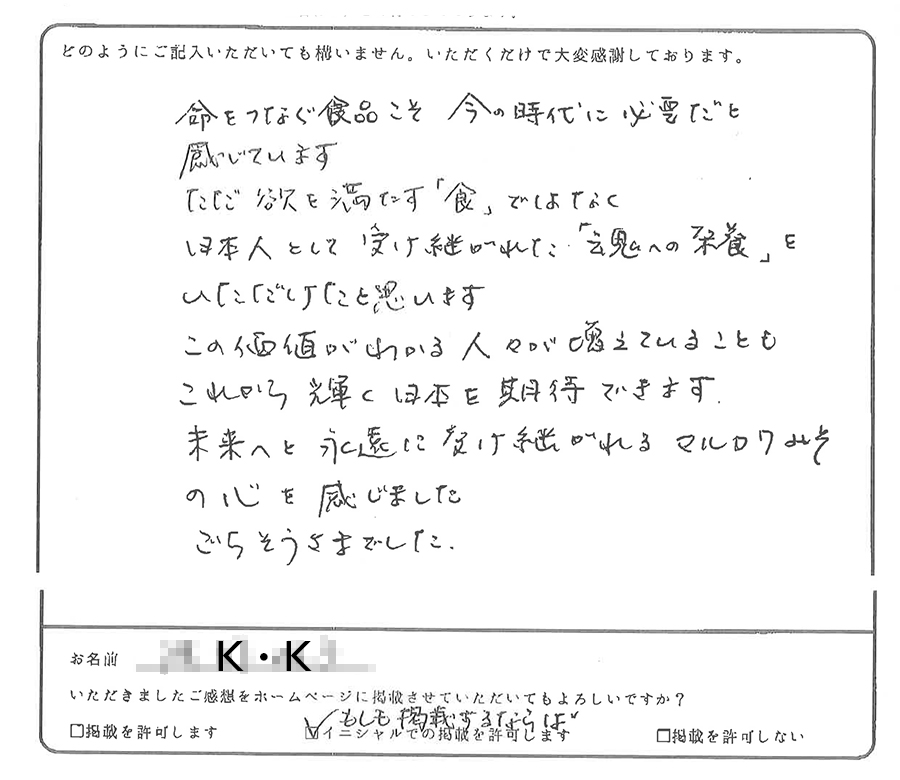 どのようにご記入いただいても構いません。いただくだけで大変感謝しております。
命をつなぐ食品こそ 今の時代に必要だと
感じています
ただ欲を満たす「食」ではなく
日本人として受け継がれた「魂への栄養」を
いただけたこと思います
この価値がわかる人々が増えていることも
これから輝く日本を期待できます.
未来へと永遠に受け継がれるマルカワみそ
の心を感じました
ごちそうさまでした.
お名前 K・K
いただきましたご感想をホームページに掲載させていただいてもよろしいですか？
もしも掲載するならば
□掲載を許可します ☑イニシャルでの掲載を許可します □掲載を許可しない